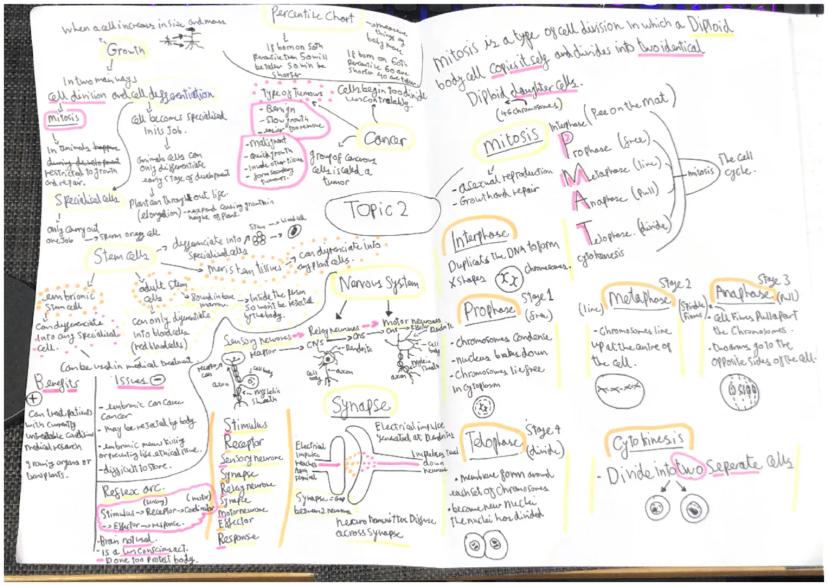 When a cell increase in size and mass
Growth
In two main ways
cell division and cell differentiation
mitosis
In animals happens
during development
restricted to growth
and repair.
Cell become specialised
in its Job.
Animals cells can
only differentiate
early stage of development
Plants can through out life.
(elongation)
height of plant
Specialised cells
only carry out
one Job
Percentile Chart
If born on 50th
be taller 50 min be
shorter
If born on 60th
shorter 40 are taller
Type of Tumours
- Benign
- Slow growth
- malignant
- quick growth
- invade other tissue
- form secondary
tumours.
Cells begin to divide
uncontrollably.
Cancer
group of cancerous
cells is called a
tumor
TOPIC 2
Stem cells
differenciate into
Specialised cells
meristem tissues
can differenciate into
any plant cells.
embrionic
stem cell
Can differenciate
into any specialised
cell.
adult stem
cells
- found in bone
marrow
Can only differentiate
into blood cells
(red blood cells)
Can be used in medical treatment
Benefits
+
Can treat patients
with currently
untreatable conditions
medical research
growing organs for
transplants.
Issues -
- embrionic can cause
cancer
- may be rejected by body.
- difficult to store.
Reflex arc.
Stimulus → Receptor →
→ Effector → response.
- Brain not used.
- is a unconscious act.
- done to protect body.
Nervous System
Sensory neurones
Relay neurones
Motor neurones
receptor
CNS
CNS
Effector
Dendrite
Dendrite
Cell
body
axon
axon
Cell
body
axon
myelin
Sheath
Stimulus
Receptor
Sensory neurone
Synapse
Relay neurone
Synapse
motor neurone
Effector
Response
Synapse
Electrical
impulse
reaches
axon
terminal
Electrical impulse
generated at Dendrite
Impulse travel
down
neurone
Synapse - gap
between 2 neurone
neurotransmitter Diffuse
across Synapse
mitosis is a type of cell division in which a Diploid
body cell copies itself and divides into two identical
Diploid daughter cells.
(46 chromosomes)
mitosis
- asexual reproduction
- Growth and repair
Interphase (Pee on the mat)
Prophase (free)
Metaphase (line)
Anaphase (Pull)
Telophase (divide)
cytokenesis
mitosis
The cell
cycle.
Interphase
Duplicates the DNA to form
X shapes
chromosomes.
Prophase
Stage 1
(free)
- chromosomes condense
- nucleus brakes down
- Chromosomes lie free
in cytoplasm
Metaphase
Stage 2
(line)
- Chromosomes line
up at the centre of
the cell.
Anaphase
Stage 3
(Pull)
- cell fibres pull apart
the Chromosomes.
- Two arms go to the
opposite sides of the cell.
Telophase
Stage 4
(divide)
- membrane form around
each set of chromosomes
- become new nuclei
the nuclei has divided
Cytokinesis
- Divide into two Seperate cells